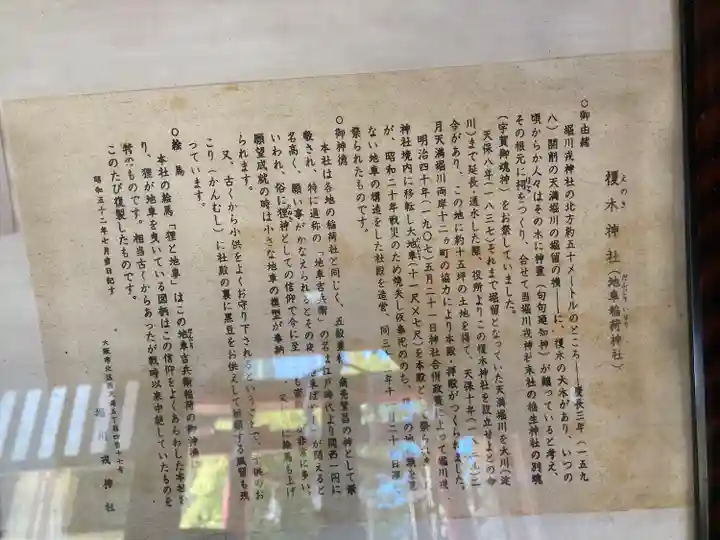 榎木神社（地車稲荷神社）
えのき
だんじり いなり
○御由緒
堀川戎神社の北方約五十メートルのところ――慶長三年（一五九
八）開削の天満堀川の堀留の横――に、榎木の大木があり、いつの
頃からか人々はその木に神霊（句句廼知神）が宿っていると考え、
その根元に祠をつくり、合せて当堀川戎神社末社の稲生神社の別魂
（宇賀御魂神）をお祭していました。
天保八年（一八三七）それまで堀留となっていた天満堀川を大川（淀
川）まで延長・通水した際、役所よりこの榎木神社を設立せよとの命
令があり、この地に約十五坪の土地を得て、天保十年（一八三九）二
月天満堀川両岸十二ヶ町の協力により本殿・拝殿がつくられました。
明治四十年（一九〇七）五月二十一日神社合併政策によって堀川戎
神社境内に移転し大地車（十一尺×七尺）を本殿として祭られ
が、昭和二十年戦災のため焼失し仮奉祀ののち、
ない地車の構造をした社殿を造営、同三十年十二十日
祭られたものです。
○御神徳
本社は各地の稲荷社と同じく、五穀豊穣、商売繁昌の神として崇
敬され、特に通称の「地車吉兵衛」の名は江戸時代より関西一円に
名高く、願い事がかなえられるとその夜地車ばやしが聞えると
いわれ、俗に狸神としての信仰で今に至非常に多い。
願望成就の時は小さな地車の模型が奉納又絵馬も上げ
られます。
又、古くから小供をよくお守り下されるということで、小供のお
こり（かんむし）に社殿の裏に黒豆をお供えして祈願する風習も残
っています。
○絵馬
本社の絵馬「狸と地車」はこの地車吉兵衛稲荷の御神徳
り、狸が地車を曳いている図柄はこの信仰をよくあらわした本社
特のものです。相当古くからあったが戦時以来中絶していたものを
このたび復製したものです。
昭和五十二年七月吉日記す
大阪市北区西天満五丁目四番十七号
堀川戎神社